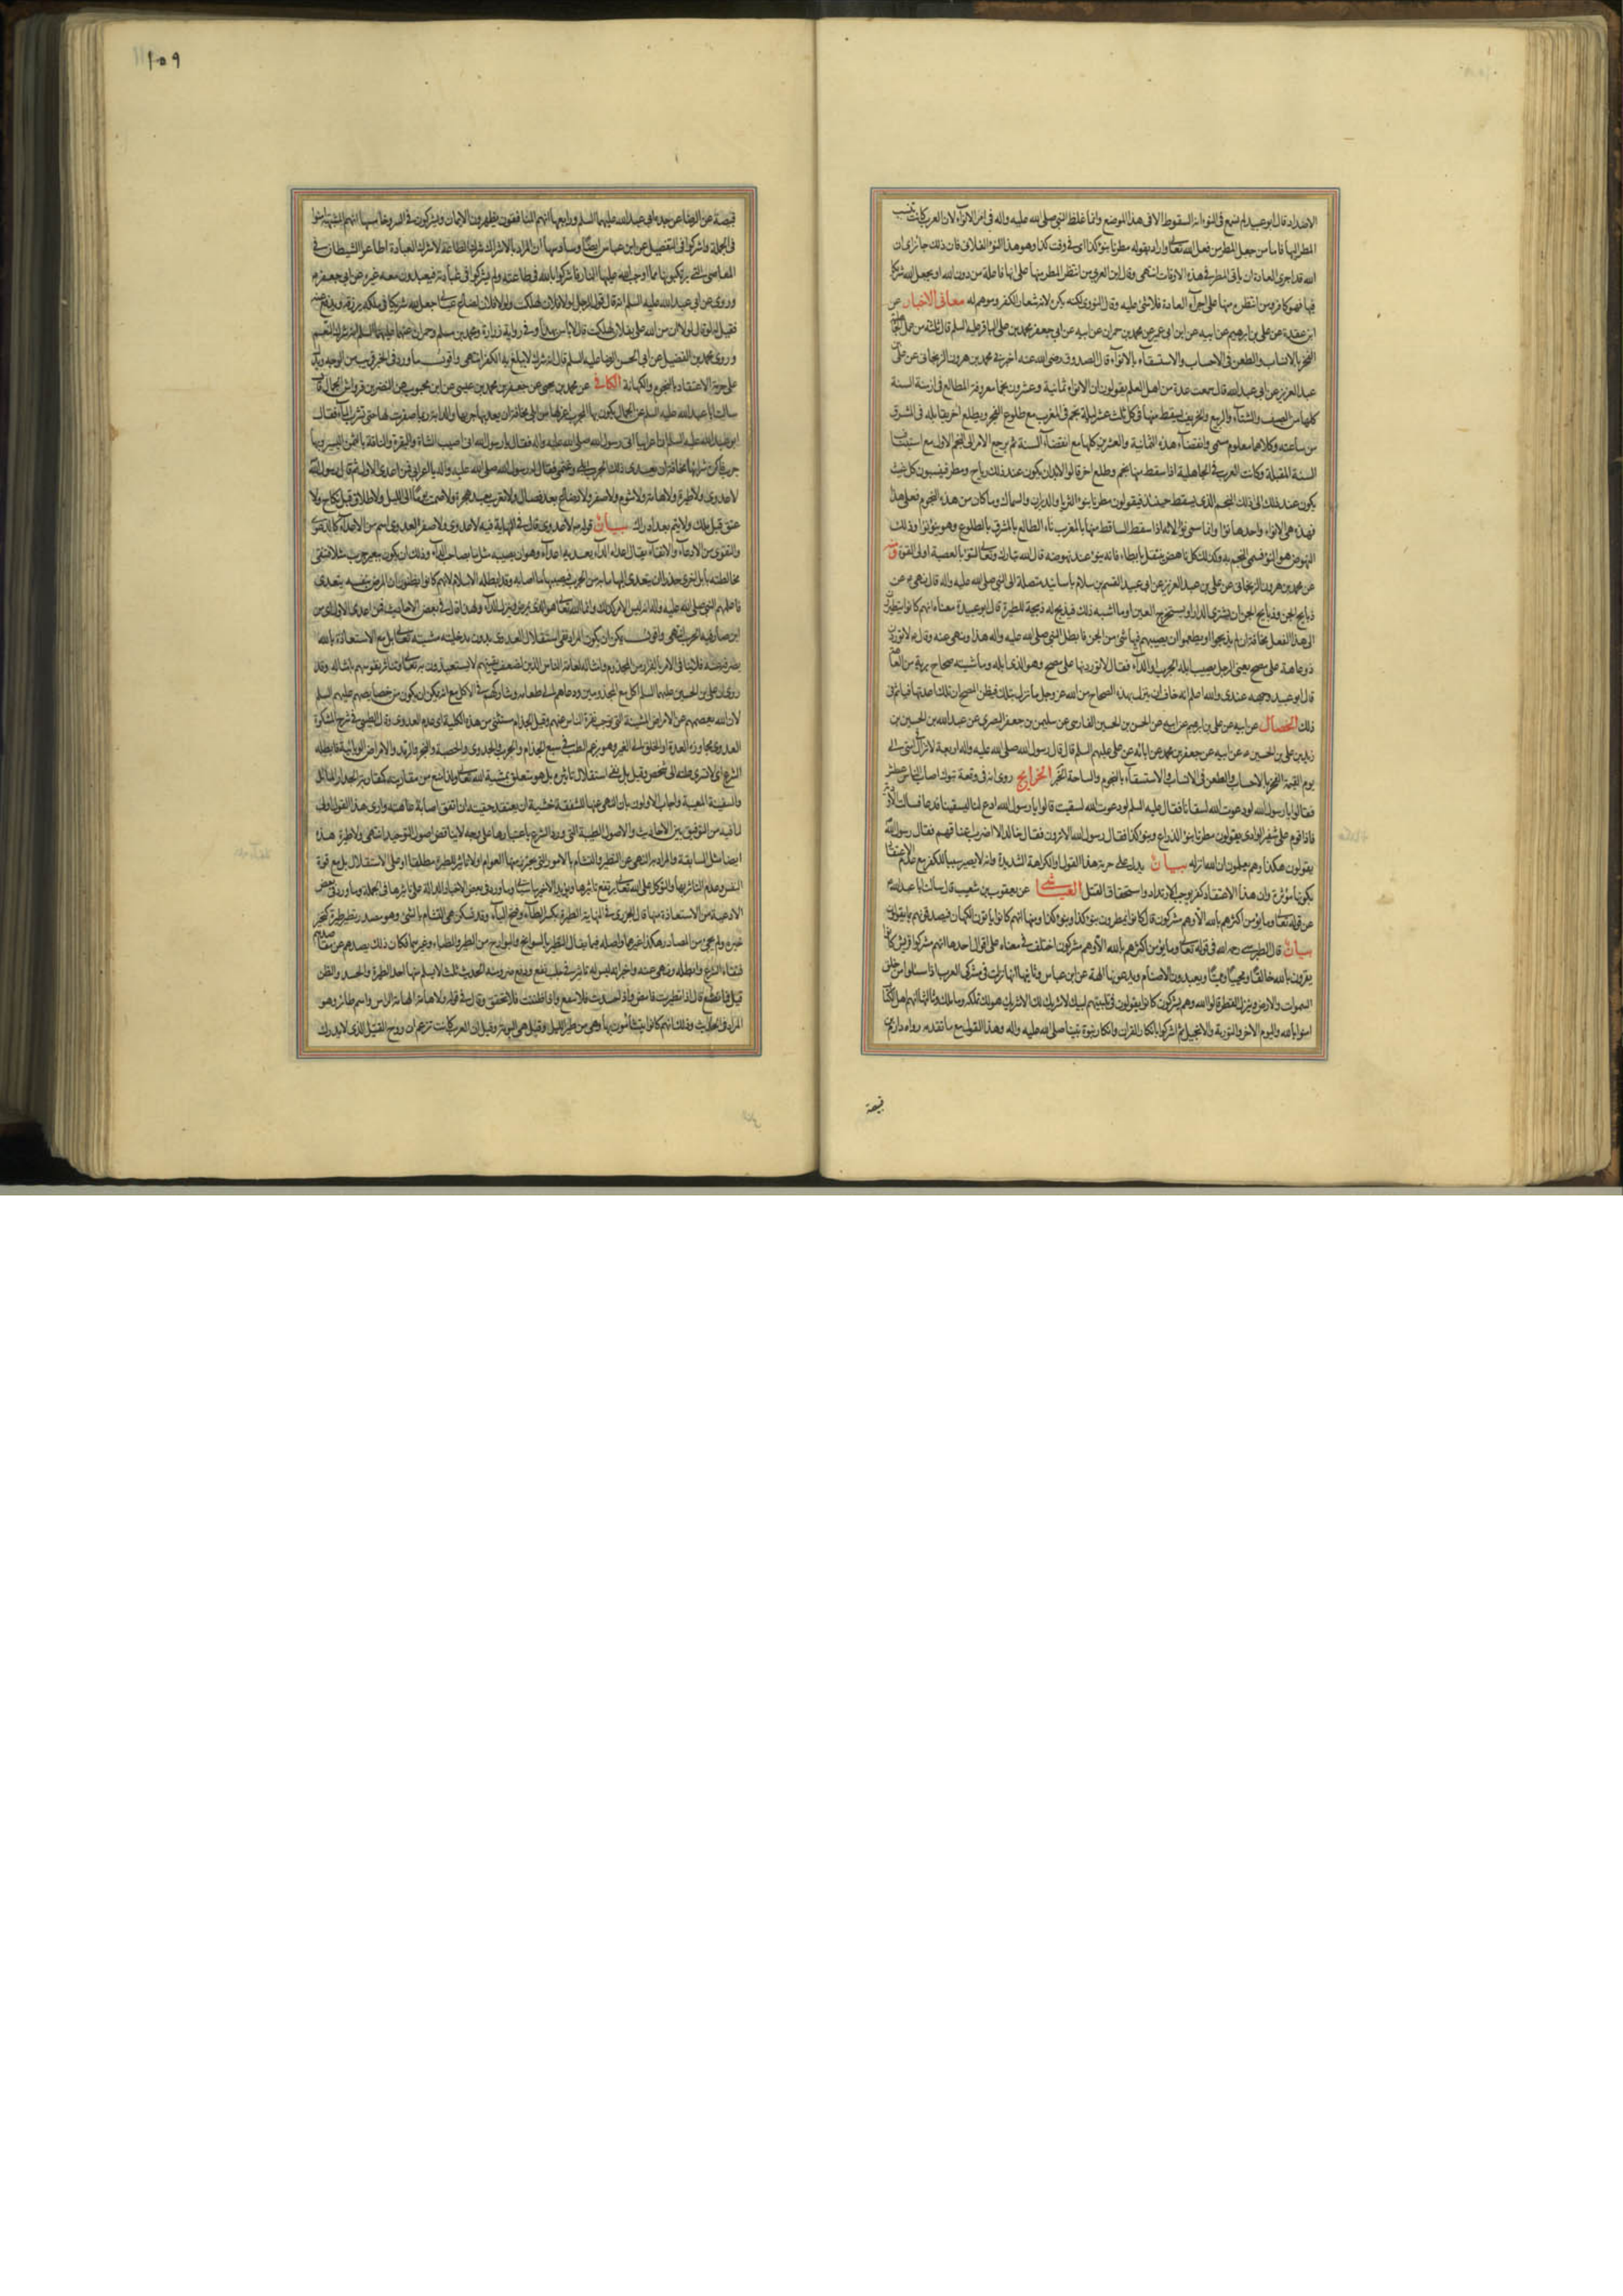 الاضداد قال ابو عبيد لم نسمع فى النوء انه السقوط الا فى هذا الموضع وانما غلظ النبي صلى الله عليه واله فى امر الانواء لان العرب كانت تنسب
المطر اليها فاما من جعل المطر من فعل الله تعالى واراد بقوله مطرنا بنوء كذا اى فى وقت كذا وهو هذا النوء الفلانى فان ذلك جائز اى ان
الله قد اجرى العادة ان ياتى المطر فى هذه الاوقات انتهى وقال ابن العربي من انتظر المطر منها على انها فاعلة من دون الله او يجعل الله شريكا
فيها فهو كافر ومن انتظر منها على اجراء العادة فلا شئ عليه وقال النووى لكنه يكره لانه شعار الكفر وموهم له معانى الاخبار عن
ابن عقدة عن على بن ابرهيم عن ابيه عن ابن ابى عمير عن محمد بن حمران عن ابيه عن ابى جعفر محمد بن على الباقر عليه السلم قال ثلثة من عمل الجاهلية
الفخر بالانساب والطعن فى الاحساب والاستسقاء بالانواء قال الصدوق رضى الله عنه اخبرنى محمد بن هرون الزنجانى عن على بن
عبد العزيز عن ابى عبيد انه قال سمعت عدة من اهل العلم يقولون ان الانواء ثمانية وعشرون نجما معروفة المطالع فى ازمنة السنة
كلها من الصيف والشتاء والربيع والخريف يسقط منها فى كل ثلث عشرة ليلة نجم فى المغرب مع طلوع الفجر ويطلع اخر يقابله فى المشرق
من ساعته وكلاهما معلوم مسمى وانقضاء هذه الثمانية والعشرين كلها مع انقضاء السنة ثم يرجع الامر الى النجم الاول مع استيناف
السنة المقبلة وكانت العرب فى الجاهلية اذا سقط منها نجم وطلع اخر قالوا لا بد ان يكون عند ذلك رياح ومطر فينسبون كل غيث
يكون عند ذلك الى ذلك النجم الذى يسقط حينئذ فيقولون مطرنا بنوء الثريا والدبران والسماك وما كان من هذه النجوم فعلى هذا
فهذه هى الانواء واحدها نوء وانما سمى نوءا لانه اذا سقط الساقط منها بالمغرب ناء الطالع بالمشرق بالطلوع وهو ينوء نوءا وذلك
النهوض هو النوء فسمى النجم به وكذلك كل ناهض ينتقل بابطاء فانه ينوء عند نهوضه قال الله تبارك وتعالى لتنوء بالعصبة اولى القوة
عن محمد بن هرون الزنجانى عن على بن عبد العزيز عن ابى عبيد القسم بن سلام باسانيد متصلة الى النبي صلى الله عليه واله قال نهى عن
ذبايح الجن وذبايح الجن ان يشترى الدار او يستخرج العين او ما اشبه ذلك فيذبح له ذبيحة للطيرة قال ابو عبيدة معناه انهم كانوا يتطيرون
الى هذا الفعل مخافة ان لم يذبحوا او يطعموا ان يصيبهم فيها شئ من الجن فابطل النبي صلى الله عليه واله هذا ونهى عنه وقال لا توردن
ذو عاهة على مصح يعنى الرجل يصيب ابله الجرب او الداء فقال لا توردنها على مصح وهو الذى ابله وماشيته صحاح برية من العاهة
قال ابو عبيد وجهه عندى والله اعلم انه خاف ان ينزل بهذه الصحاح من الله عز وجل ما نزل بتلك فيظن المصح ان تلك اعدتها فياثم فى
ذلك الخصال عن ابيه عن على بن ابرهيم عن ابيه عن الحسن بن الحسين الفارسى عن سليمن بن جعفر البصرى عن عبد الله بن الحسين بن
زيد بن على بن الحسين عن ابيه عن جعفر بن محمد عن ابائه عن على عليهم السلم قال قال رسول الله صلى الله عليه واله اربعة لا تزال فى امتى الى
يوم القيمة الفخر بالاحساب والطعن فى الانساب والاستسقاء بالنجوم والنياحة الخبر الخرايج روى انه فى وقعة تبوك اصاب الناس عطش
فقالوا يا رسول الله لو دعوت الله لسقانا فقال عليه السلم لو دعوت الله لسقيت قالوا يا رسول الله ادع لنا ليسقينا فدعا فسالت الاودية
فاذا قوم على شفير الوادى يقولون مطرنا بنوء الذراع وبنوء كذا فقال رسول الله الا ترون فقال خالد الا اضرب اعناقهم فقال رسول الله
يقولون هكذا وهم يعلمون ان الله انزله بيان يدل على حرمة هذا القول والكراهة الشديدة وانه لا يصير سببا للكفر مع عدم الاعتقاد
بكونها مؤثرة وان هذا الاعتقاد كفر يوجب الارتداد واستحقاق القتل العياشى عن يعقوب بن شعيب قال سالت ابا عبد الله
عن قوله تعالى وما يؤمن اكثرهم بالله الا وهم مشركون قال كانوا يمطرون بنوء كذا وبنوء كذا ومنها انهم كانوا ياتون الكهان فيصدقونهم بما يقولون
بيان قال الطبرسى رحمه الله فى قوله تعالى وما يؤمن اكثرهم بالله الا وهم مشركون اختلف فى معناه على اقوال احدها انهم مشركوا قريش كانوا
يقرون بالله خالقا ومحييا ومميتا ويعبدون الاصنام ويدعونها الهة عن ابن عباس وثانيها انها نزلت فى مشركى العرب اذا سئلوا من خلق
السموات والارض وينزل القطر قالوا الله وهم يشركون كانوا يقولون فى تلبيتهم لبيك لا شريك لك الا شريك هو لك تملكه وما ملك وثالثها انهم اهل الكتاب
امنوا بالله واليوم الاخر والتورية والانجيل ثم اشركوا بانكار القران وانكار نبوة نبينا صلى الله عليه واله وهذا القول مع ما تقدمه رواه دارم بن
قبيصة
١٠٩
قبيصة عن الرضا عن جده ابى عبد الله عليهما السلم ورابعها انهم المنافقون يظهرون الايمان ويشركون فى السر وخامسها انهم المشبهة امنوا
فى الجملة واشركوا فى التفصيل عن ابن عباس ايضا وسادسها ان المراد بالاشراك شرك الطاعة لا شرك العبادة اطاعوا الشيطان فى
المعاصى التى يرتكبونها مما اوجب الله عليها النار فاشركوا بالله فى طاعته ولم يشركوا فى عبادته فيعبدون معه غيره عن ابى جعفر
وروى عن ابى عبد الله عليه السلم انه قال قول الرجل لولا فلان لهلكت ولولا فلان لضاع عيالى جعل لله شريكا فى ملكه يرزقه ويدفع عنه
فقيل له لو قال لولا ان من الله على بفلان لهلكت قال لا باس بهذا وفى رواية زرارة ومحمد بن مسلم وحمران عنهما عليهما السلم انه شرك النعم
وروى محمد بن الفضيل عن ابى الحسن الرضا عليه السلم قال انه شرك لا يبلغ به الكفر انتهى واقول ما ورد فى الخبر قريب من الوجه
على حرمة الاعتقاد بالنجوم والكهانة الكافى عن محمد بن يحيى عن جعفر بن محمد بن عيسى عن ابن محبوب عن النضر بن قرواش الجمال قال
سالت ابا عبد الله عليه السلم عن الجمال يكون بها الجرب اعزلها من ابلى مخافة ان يعديها جربها والدابة ربما صفرت لها حتى تشرب الماء فقال
ابو عبد الله عليه السلم ان اعرابيا اتى رسول الله صلى الله عليه واله فقال يا رسول الله انى اصيب الشاة والبقرة والناقة بالثمن اليسير وبها
جرب فاكره شراءها مخافة ان يعدى ذلك الجرب ابلى وغنمى فقال له رسول الله صلى الله عليه واله يا اعرابى فمن اعدى الاول ثم قال رسول الله
لا عدوى ولا طيرة ولا هامة ولا شوم ولا صفر ولا رضاع بعد فصال ولا تعرب بعد هجرة ولا صمت يوما الى الليل ولا طلاق قبل نكاح ولا
عتق قبل ملك ولا يتم بعد ادراك بيان قوله لا عدوى قال فى النهاية فيه لا عدوى ولا صفر العدوى اسم من الاعداء كالدعوى
والتقوى من الادعاء والاتقاء يقال اعداه الداء يعديه اعداء وهو ان يصيبه مثل ما بصاحب الداء وذلك ان يكون ببعير جرب مثلا فتتقى
مخالطته بابل اخرى حذرا ان يتعدى اليها ما به من الجرب فيصيبها ما اصابه وقد ابطله الاسلام لانهم كانوا يظنون ان المرض بنفسه يتعدى
فاعلمهم النبي صلى الله عليه واله انه ليس الامر كذلك وانما الله تعالى هو الذى يمرض وينزل الداء ولهذا قال فى بعض الاحاديث فمن اعدى الاول اى من
اين صار فيه الجرب انتهى واقول يمكن ان يكون المراد نفى استقلال العدوى بدون مدخلية مشية الله تعالى بل مع الاستعاذة بالله
يصرفه عنه فلا ينافى الامر بالفرار من المجذوم وامثاله لعامة الناس الذين لضعف يقينهم لا يستعيذون به تعالى وتتاثر نفوسهم بامثاله وقد
روى ان على بن الحسين عليهما السلم اكل مع المجذومين ودعاهم الى طعامه وشاركهم فى الاكل
لان الله يعصمهم عن الامراض المشينة التى توجب نفرة الناس عنهم وقيل الجذام مستثنى من هذه الكلية اى عدم العدوى وقال الطيبى فى شرح المشكوة
العدوى مجاوزة العلة او الخلق الى الغير وهو بزعم الطب فى سبع الجذام والجرب والجدرى والحصبة والبخر والرمد والامراض الوبائية فابطله
الشرع اى لا تسرى علة الى شخص وقيل بل نفى استقلال تاثيره بل هو متعلق بمشية الله تعالى ولذا منع من مقاربته كمقاربة الجدار المايل
والسفينة المعيبة واجاب الاولون بان النهى عنها للشفقة خشية ان يعتقد حقيته ان اتفق اصابة عاهة وارى هذا القول اولى
لما فيه من التوفيق بين الاحاديث والاصول الطبية التى ورد الشرع باعتبارها على وجه لا يناقض اصول التوحيد انتهى ولا طيرة هذه
ايضا مثل السابقة والمراد به النهى عن التطير والتشام بالامور التى يحترز منها العوام او لا تاثير للطيرة مطلقا او على الاستقلال بل مع قوة
النفس وعدم التاثر بها والتوكل على الله تعالى يرتفع تاثيرها ويؤيد الاخير ما سياتى وما ورد فى بعض الاخبار الدالة على تاثيرها فى الجملة وما ورد فى بعض
الادعية من الاستعاذة منها قال الجزرى فى النهاية الطيرة بكسر الطاء وفتح الياء وقد تسكن هى التشام بالشئ وهو مصدر تطير طيرة كتخير
خيرة ولم يجئ من المصادر هكذا غيرهما واصله فيما يقال التطير بالسوانح والبوارح من الطير والظباء وغيرهما فكان ذلك يصدهم عن مقاصدهم
فنفاه الشرع وابطله ونهى عنه واخبر انه ليس له تاثير فى جلب نفع ودفع ضر ومنه الحديث ثلث لا يسلم منها احد الطيرة والحسد والظن
قيل فما نصنع قال اذا تطيرت فامض واذا حسدت فلا تبغ واذا ظننت فلا تحقق وقال فى قوله ولا هامة الهامة الراس واسم طائر وهو
المراد فى الحديث وذلك انهم كانوا يتشامون بها وهى من طير الليل وقيل هى البومة وقيل ان العرب كانت تزعم ان روح القتيل الذى لا يدرك